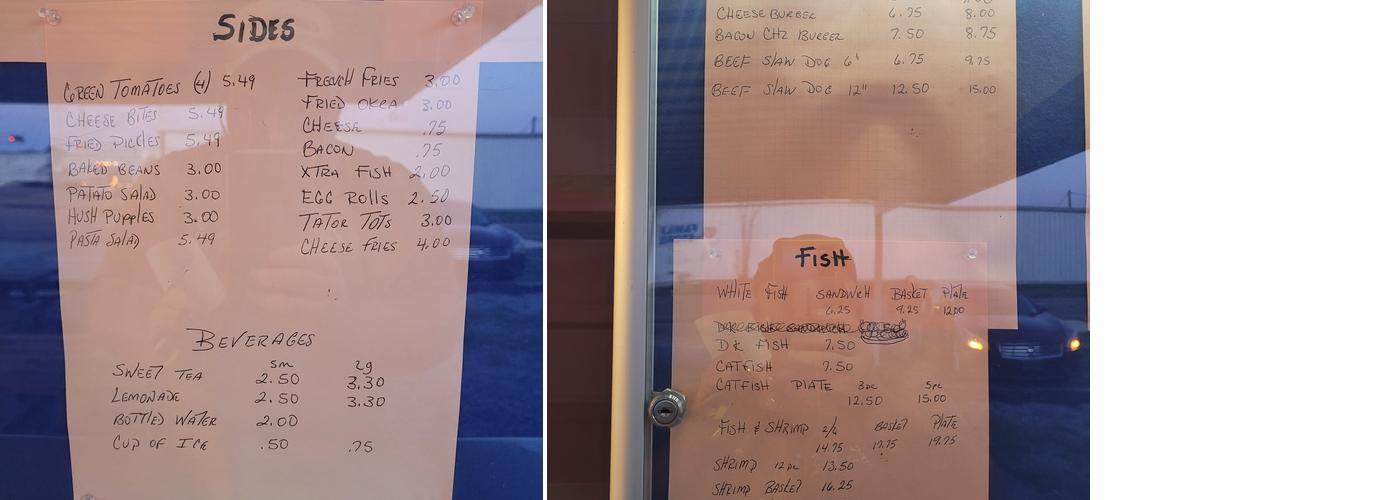 SIDES
GREEN TOMATOES (4) 5.49
CHEESE BITES 5.49
FRIED PICKLES 5.49
BAKED BEANS 3.00
PATATO SALAD 3.00
HUSH PUPPIES 3.00
PASTA SALAD 5.49
FRENCH FRIES 3.00
FRIED OKRA 3.00
CHEESE .75
BACON .75
XTRA FISH 2.00
EGG ROLLS 2.50
TATOR TOTS 3.00
CHEESE FRIES 4.00
BEVERAGES
sm lg
SWEET TEA 2.50 3.30
LEMONADE 2.50 3.30
BOTTLED WATER 2.00
CUP OF ICE .50 .75
CHEESE BURGER 6.75 8.00
BACON CHZ BURGER 7.50 8.75
BEEF SLAW DOG 6" 6.75 9.75
BEEF SLAW DOG 12" 12.50 15.00
FAMILY
FISH
WHITE FISH SANDWICH BASKET PLATE
6.25 9.25 12.00
DK FISH 7.50
CATFISH 7.50
CATFISH PLATE 3pc 5pc
12.50 15.00
FISH & SHRIMP 2/6 BASKET PLATE
14.75 17.75 19.75
SHRIMP 12pc 13.50
SHRIMP BASKET 16.25